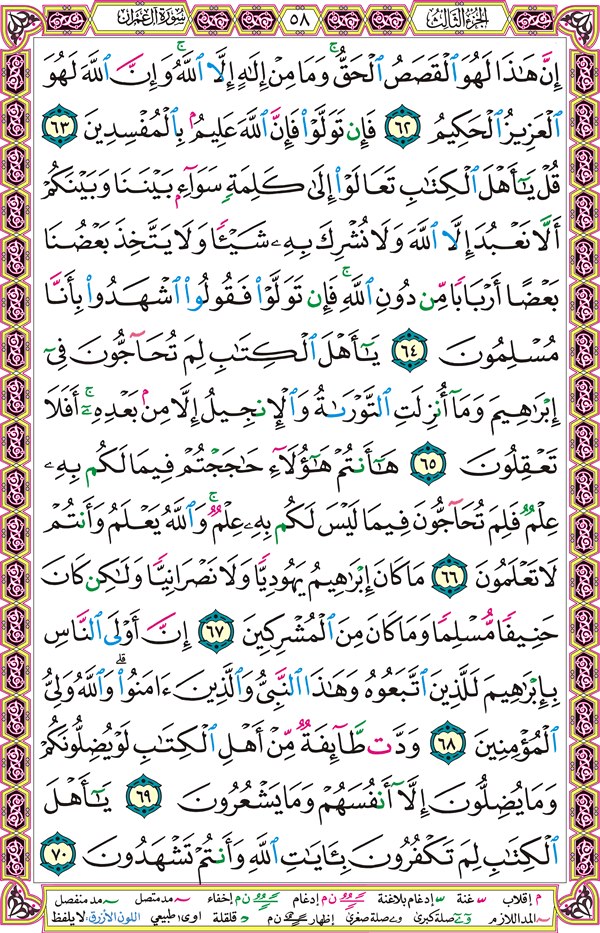 الجزء الثالث
٥٨
سورة آل عمران
إِنَّ هَٰذَا لَهُوَ ٱلْقَصَصُ ٱلْحَقُّ ۚ وَمَا مِنْ إِلَٰهٍ إِلَّا ٱللَّهُ ۚ وَإِنَّ ٱللَّهَ لَهُوَ
ٱلْعَزِيزُ ٱلْحَكِيمُ ٦٢ فَإِن تَوَلَّوْا۟ فَإِنَّ ٱللَّهَ عَلِيمٌۢ بِٱلْمُفْسِدِينَ ٦٣
قُلْ يَٰٓأَهْلَ ٱلْكِتَٰبِ تَعَالَوْا۟ إِلَىٰ كَلِمَةٍ سَوَآءٍۭ بَيْنَنَا وَبَيْنَكُمْ
أَلَّا نَعْبُدَ إِلَّا ٱللَّهَ وَلَا نُشْرِكَ بِهِۦ شَيْـًٔا وَلَا يَتَّخِذَ بَعْضُنَا
بَعْضًا أَرْبَابًا مِّن دُونِ ٱللَّهِ ۚ فَإِن تَوَلَّوْا۟ فَقُولُوا۟ ٱشْهَدُوا۟ بِأَنَّا
مُسْلِمُونَ ٦٤ يَٰٓأَهْلَ ٱلْكِتَٰبِ لِمَ تُحَآجُّونَ فِىٓ
إِبْرَٰهِيمَ وَمَآ أُنزِلَتِ ٱلتَّوْرَىٰةُ وَٱلْإِنجِيلُ إِلَّا مِنۢ بَعْدِهِۦٓ ۚ أَفَلَا
تَعْقِلُونَ ٦٥ هَٰٓأَنتُمْ هَٰٓؤُلَآءِ حَٰجَجْتُمْ فِيمَا لَكُم بِهِۦ
عِلْمٌ فَلِمَ تُحَآجُّونَ فِيمَا لَيْسَ لَكُم بِهِۦ عِلْمٌ ۚ وَٱللَّهُ يَعْلَمُ وَأَنتُمْ
لَا تَعْلَمُونَ ٦٦ مَا كَانَ إِبْرَٰهِيمُ يَهُودِيًّا وَلَا نَصْرَانِيًّا وَلَٰكِن كَانَ
حَنِيفًا مُّسْلِمًا وَمَا كَانَ مِنَ ٱلْمُشْرِكِينَ ٦٧ إِنَّ أَوْلَى ٱلنَّاسِ
بِإِبْرَٰهِيمَ لَلَّذِينَ ٱتَّبَعُوهُ وَهَٰذَا ٱلنَّبِىُّ وَٱلَّذِينَ ءَامَنُوا۟ ۗ وَٱللَّهُ وَلِىُّ
ٱلْمُؤْمِنِينَ ٦٨ وَدَّت طَّآئِفَةٌ مِّنْ أَهْلِ ٱلْكِتَٰبِ لَوْ يُضِلُّونَكُمْ
وَمَا يُضِلُّونَ إِلَّآ أَنفُسَهُمْ وَمَا يَشْعُرُونَ ٦٩ يَٰٓأَهْلَ
ٱلْكِتَٰبِ لِمَ تَكْفُرُونَ بِـَٔايَٰتِ ٱللَّهِ وَأَنتُمْ تَشْهَدُونَ ٧٠
م إقلاب س غنة س إدغام بلاغنة ن م إدغام ن م إخفاء مد متصل مد منفصل
المد اللازم صلة كبرى صلة صغرى إظهار ن م قلقلة اوى: طبيعي اللون الأزرق: لا يلفظ